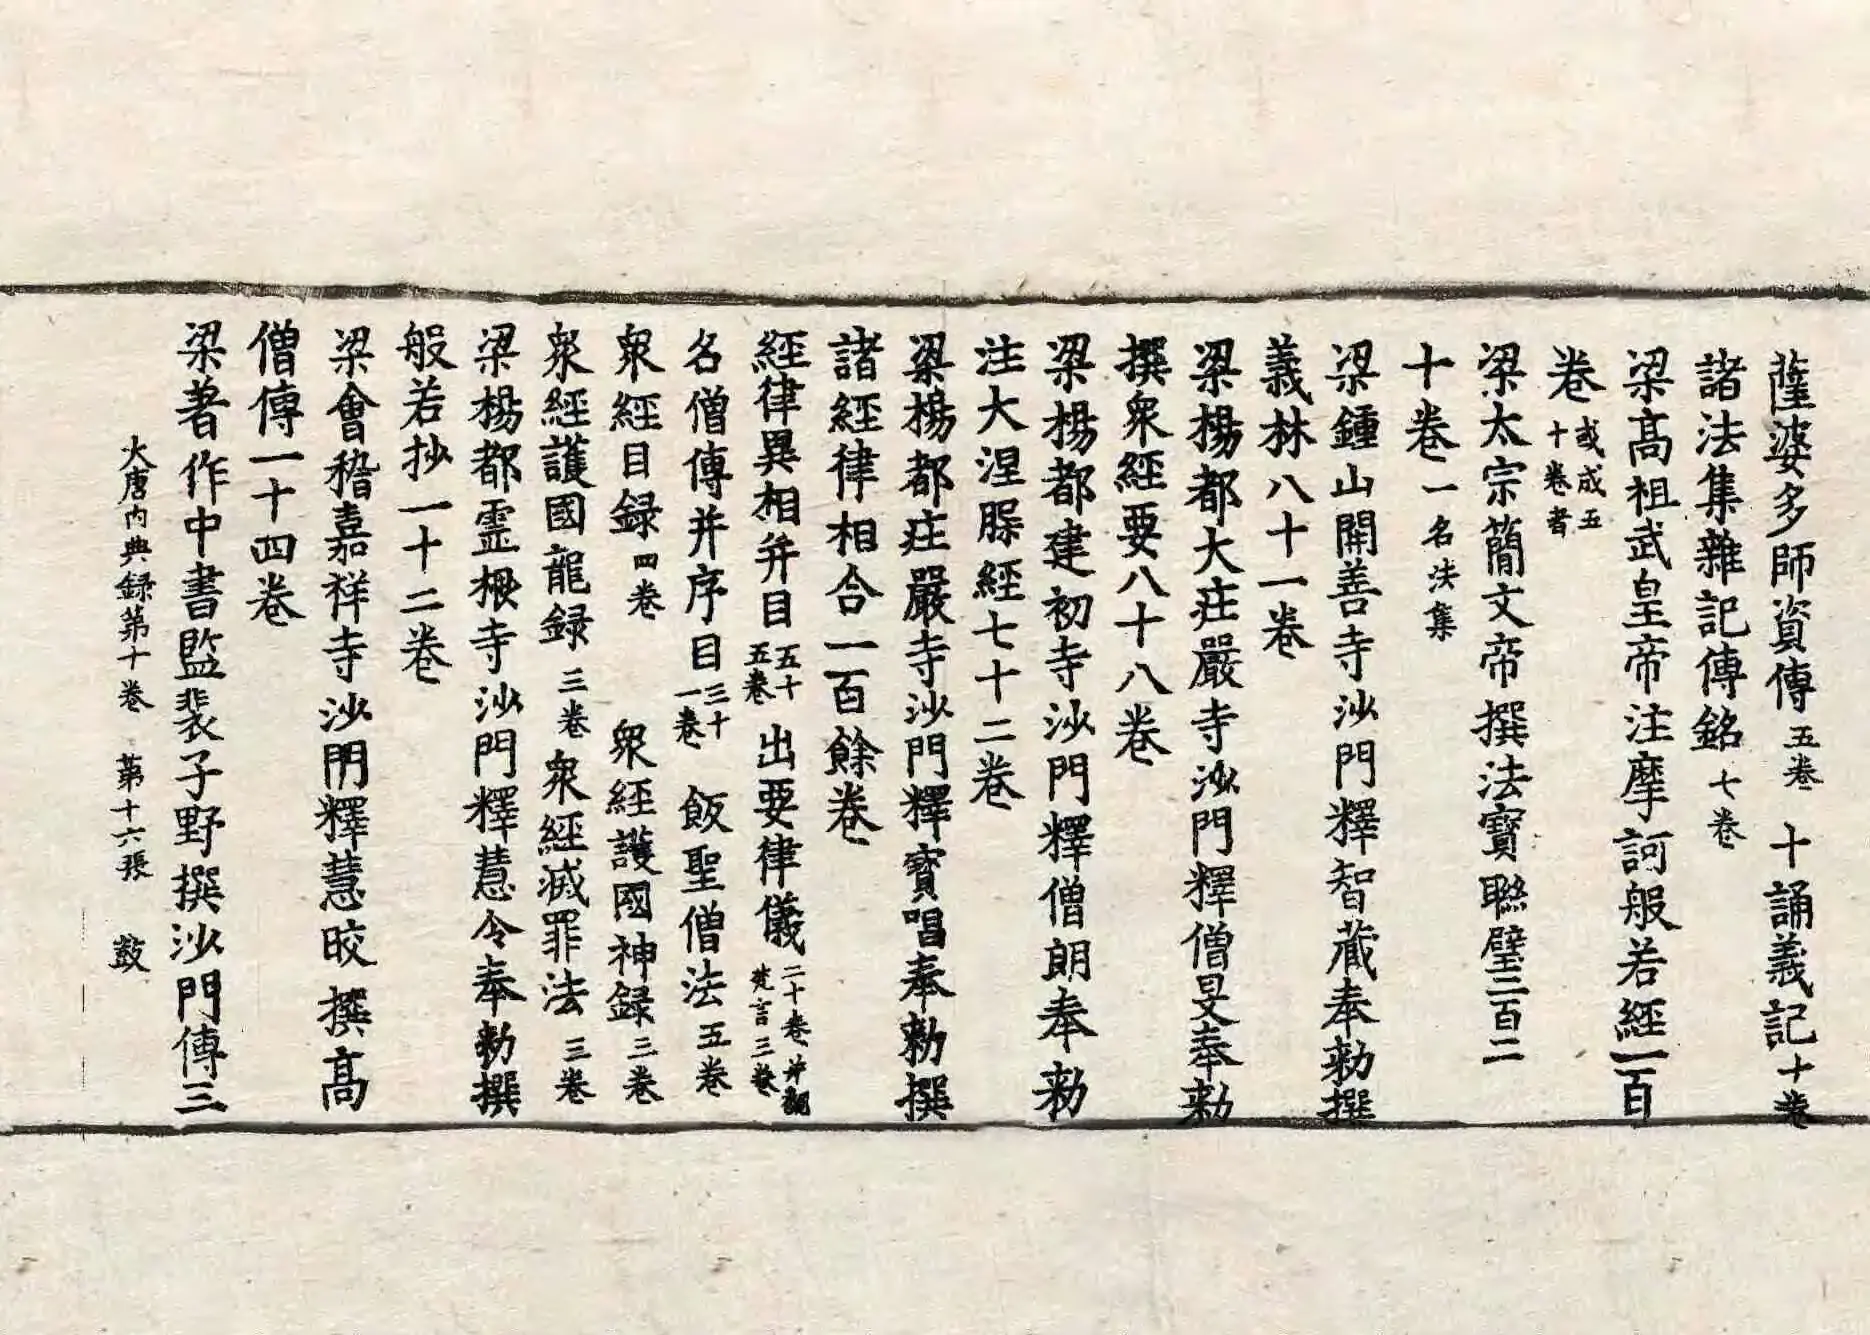 薩婆多師資傳五卷 十誦義記十卷
諸法集雜記傳銘七卷
梁髙祖武皇帝注摩訶般若經一百
卷或成五十卷者
梁太宗簡文帝撰法寶聯璧二百二
十卷一名法集
梁鍾山開善寺沙門釋智藏奉勑撰
義林八十一卷
梁楊都大莊嚴寺沙門釋僧旻奉勑
撰衆經要八十八卷
梁楊都建初寺沙門釋僧朗奉勑
注大涅脲經七十二卷
梁楊都莊嚴寺沙門釋寶唱奉勑撰
諸經律相合一百餘卷
經律異相并目五十五卷 出要律儀二十卷并翻梵言三卷
名僧傳并序目三十一卷 飯聖僧法五卷
衆經目録四卷 衆經護國神録三卷
衆經護國龍録三卷 衆經滅罪法三卷
梁楊都靈根寺沙門釋慧令奉勑撰
般若抄一十二卷
梁會稽嘉祥寺沙門釋慧皎撰髙
僧傳一十四卷
梁著作中書監裴子野撰沙門傳三
大唐内典録第十卷 第十六張 鼓